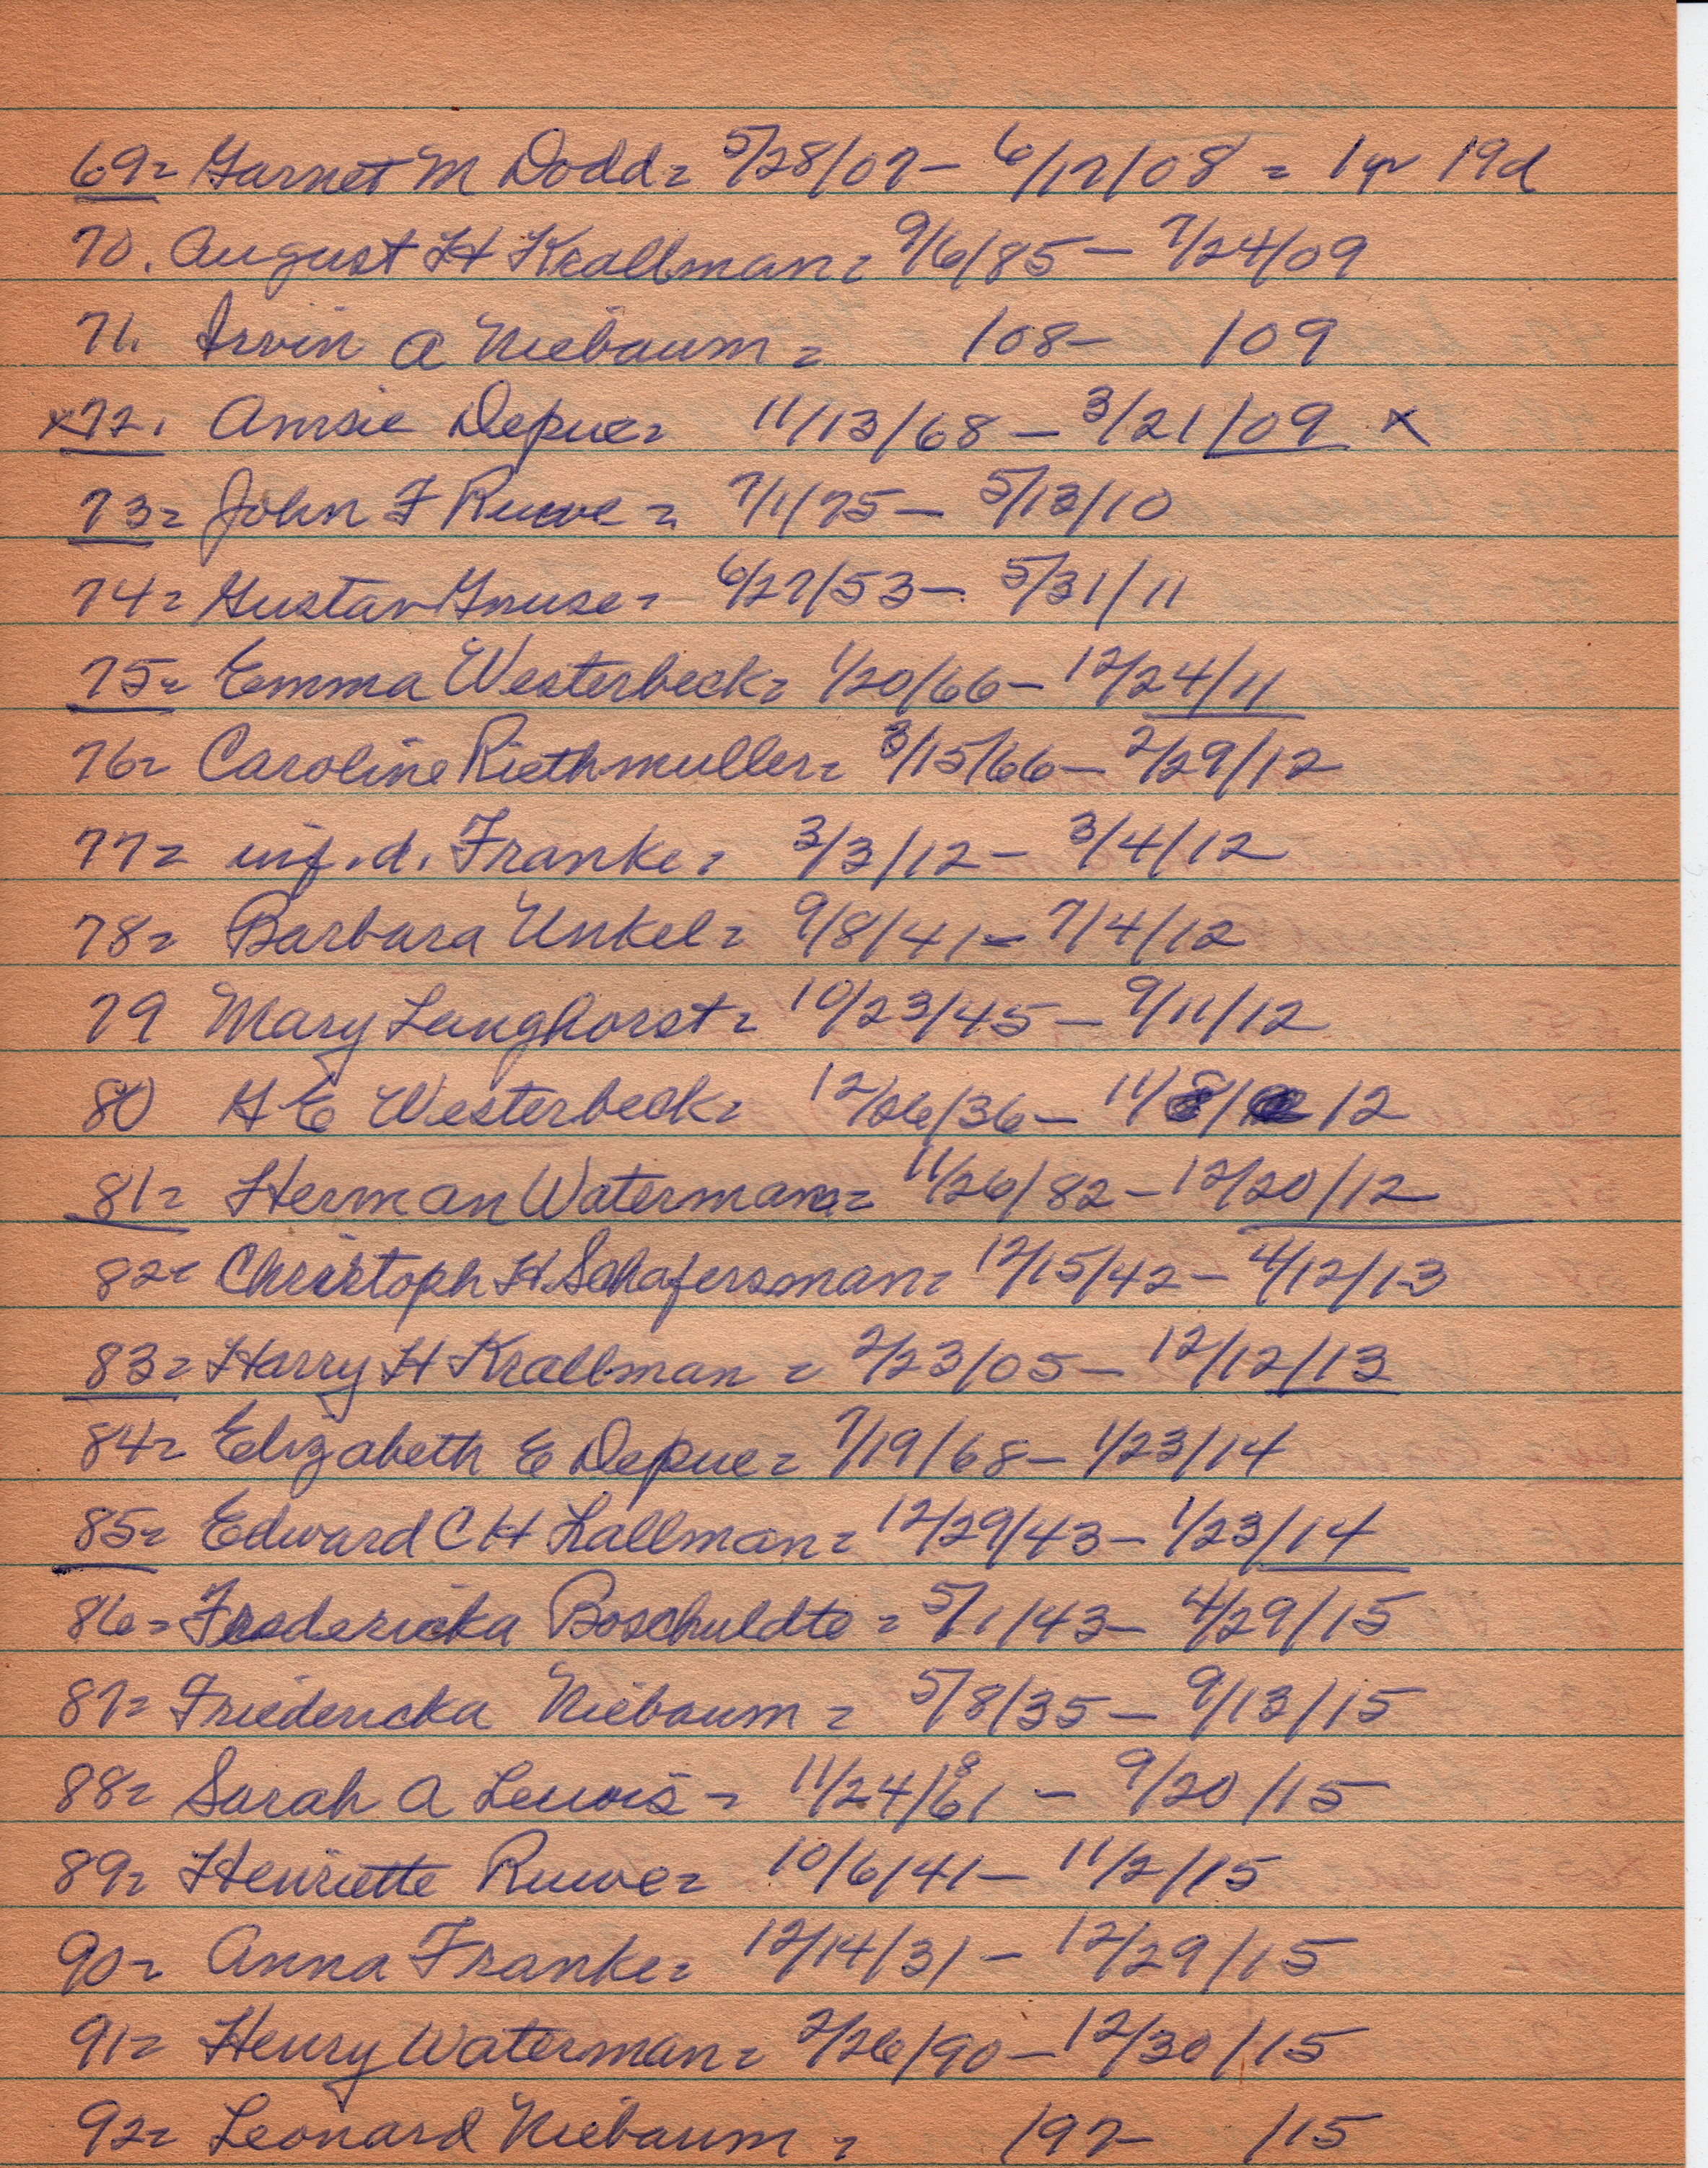 69= Garnet M Dodd= 5/28/07- 6/17/08 = 1 yr 19d
70. August H Krallman= 9/6/85- 7/24/09
71. Irvin A Niebaum= /08- /09
x72. Amsie Depue= 11/13/68- 3/21/09 x
73= John F Ruwe= 7/1/75- 5/13/10
74= Gustav Gnuse= 6/27/53- 5/31/11
75= Emma Westerbeck= 1/20/66- 12/24/11
76= Caroline Riethmuller= 3/15/66- 2/29/12
77= inf. d. Franke= 3/3/12- 3/4/12
78= Barbara Unkel= 9/8/41- 7/4/12
79 Mary Langhorst= 10/23/45- 9/11/12
80 H E Westerbeck= 12/26/36- 11/8/12
81= Herman Waterman= 11/26/82- 12/20/12
82= Christoph H. Schafersman= 12/15/42- 4/12/13
83= Harry H Krallman= 2/23/05- 12/12/13
84= Elizabeth E Depue= 7/19/68- 1/23/14
85= Edward C H Lallman= 12/29/43- 1/23/14
86= Fredericka Boschuldte= 5/1/43- 4/29/15
87= Friedericka Niebaum= 5/8/35- 9/13/15
88= Sarah A Lewis- 11/24/1861 - 9/20/15
89= Henriette Ruwe= 10/6/41- 11/2/15
90= Anna Franke= 12/14/31- 12/29/15
91= Henry Waterman= 2/26/90- 12/30/15
92= Leonard Niebaum= /97- /15